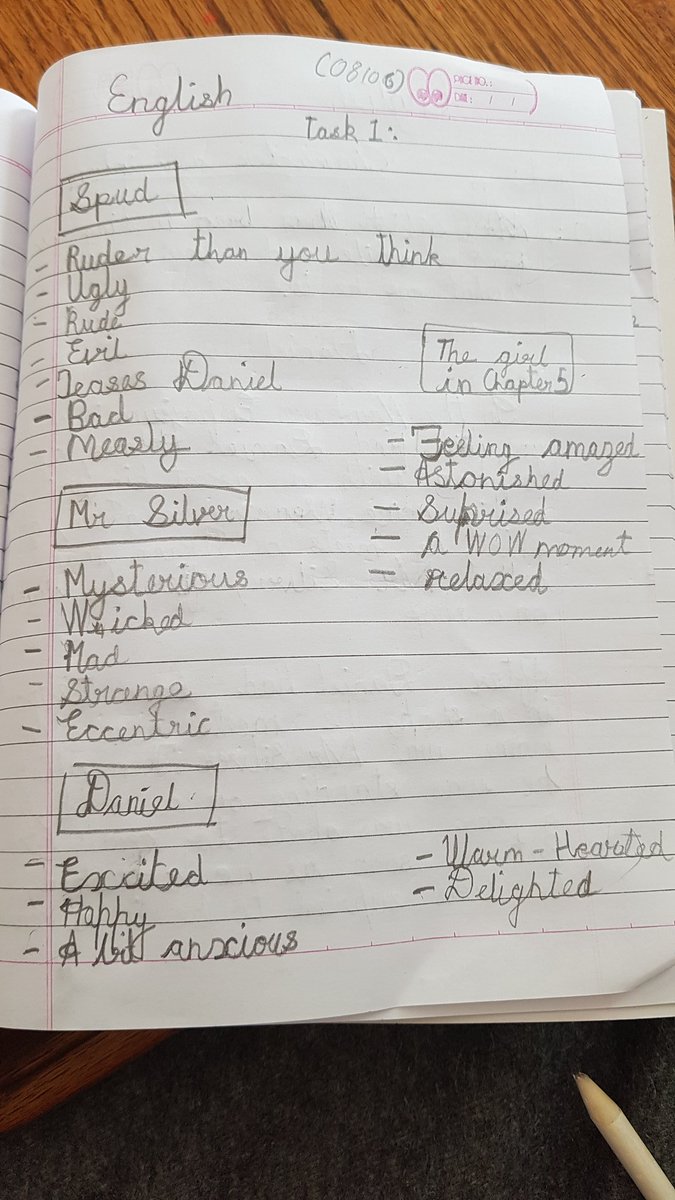 (08106)
PAGE NO.:
DATE: / /
English
Task 1:
Spud
- Ruder than you think
- Ugly
- Rude
- Evil
- Teases Daniel
- Bad
- Measly
The girl
in Chapter 5
- Feeling amazed
- Astonished
- Suprised
- a WOW moment
- relaxed
Mr Silver
- Mysterious
- Wicked
- Mad
- Strange
- Eccentric
Daniel
- Excited
- Happy
- A bit anxious
- Warm-Hearted
- Delighted